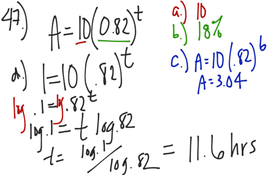 47.) A = 10(0.82)^t
a.) 10
b.) 18%
c.) A = 10(.82)^6
A = 3.04
d.) 1 = 10(.82)^t
log .1 = log .82^t
log .1 = t log .82
t = log .1 / log .82 = 11.6 hrs